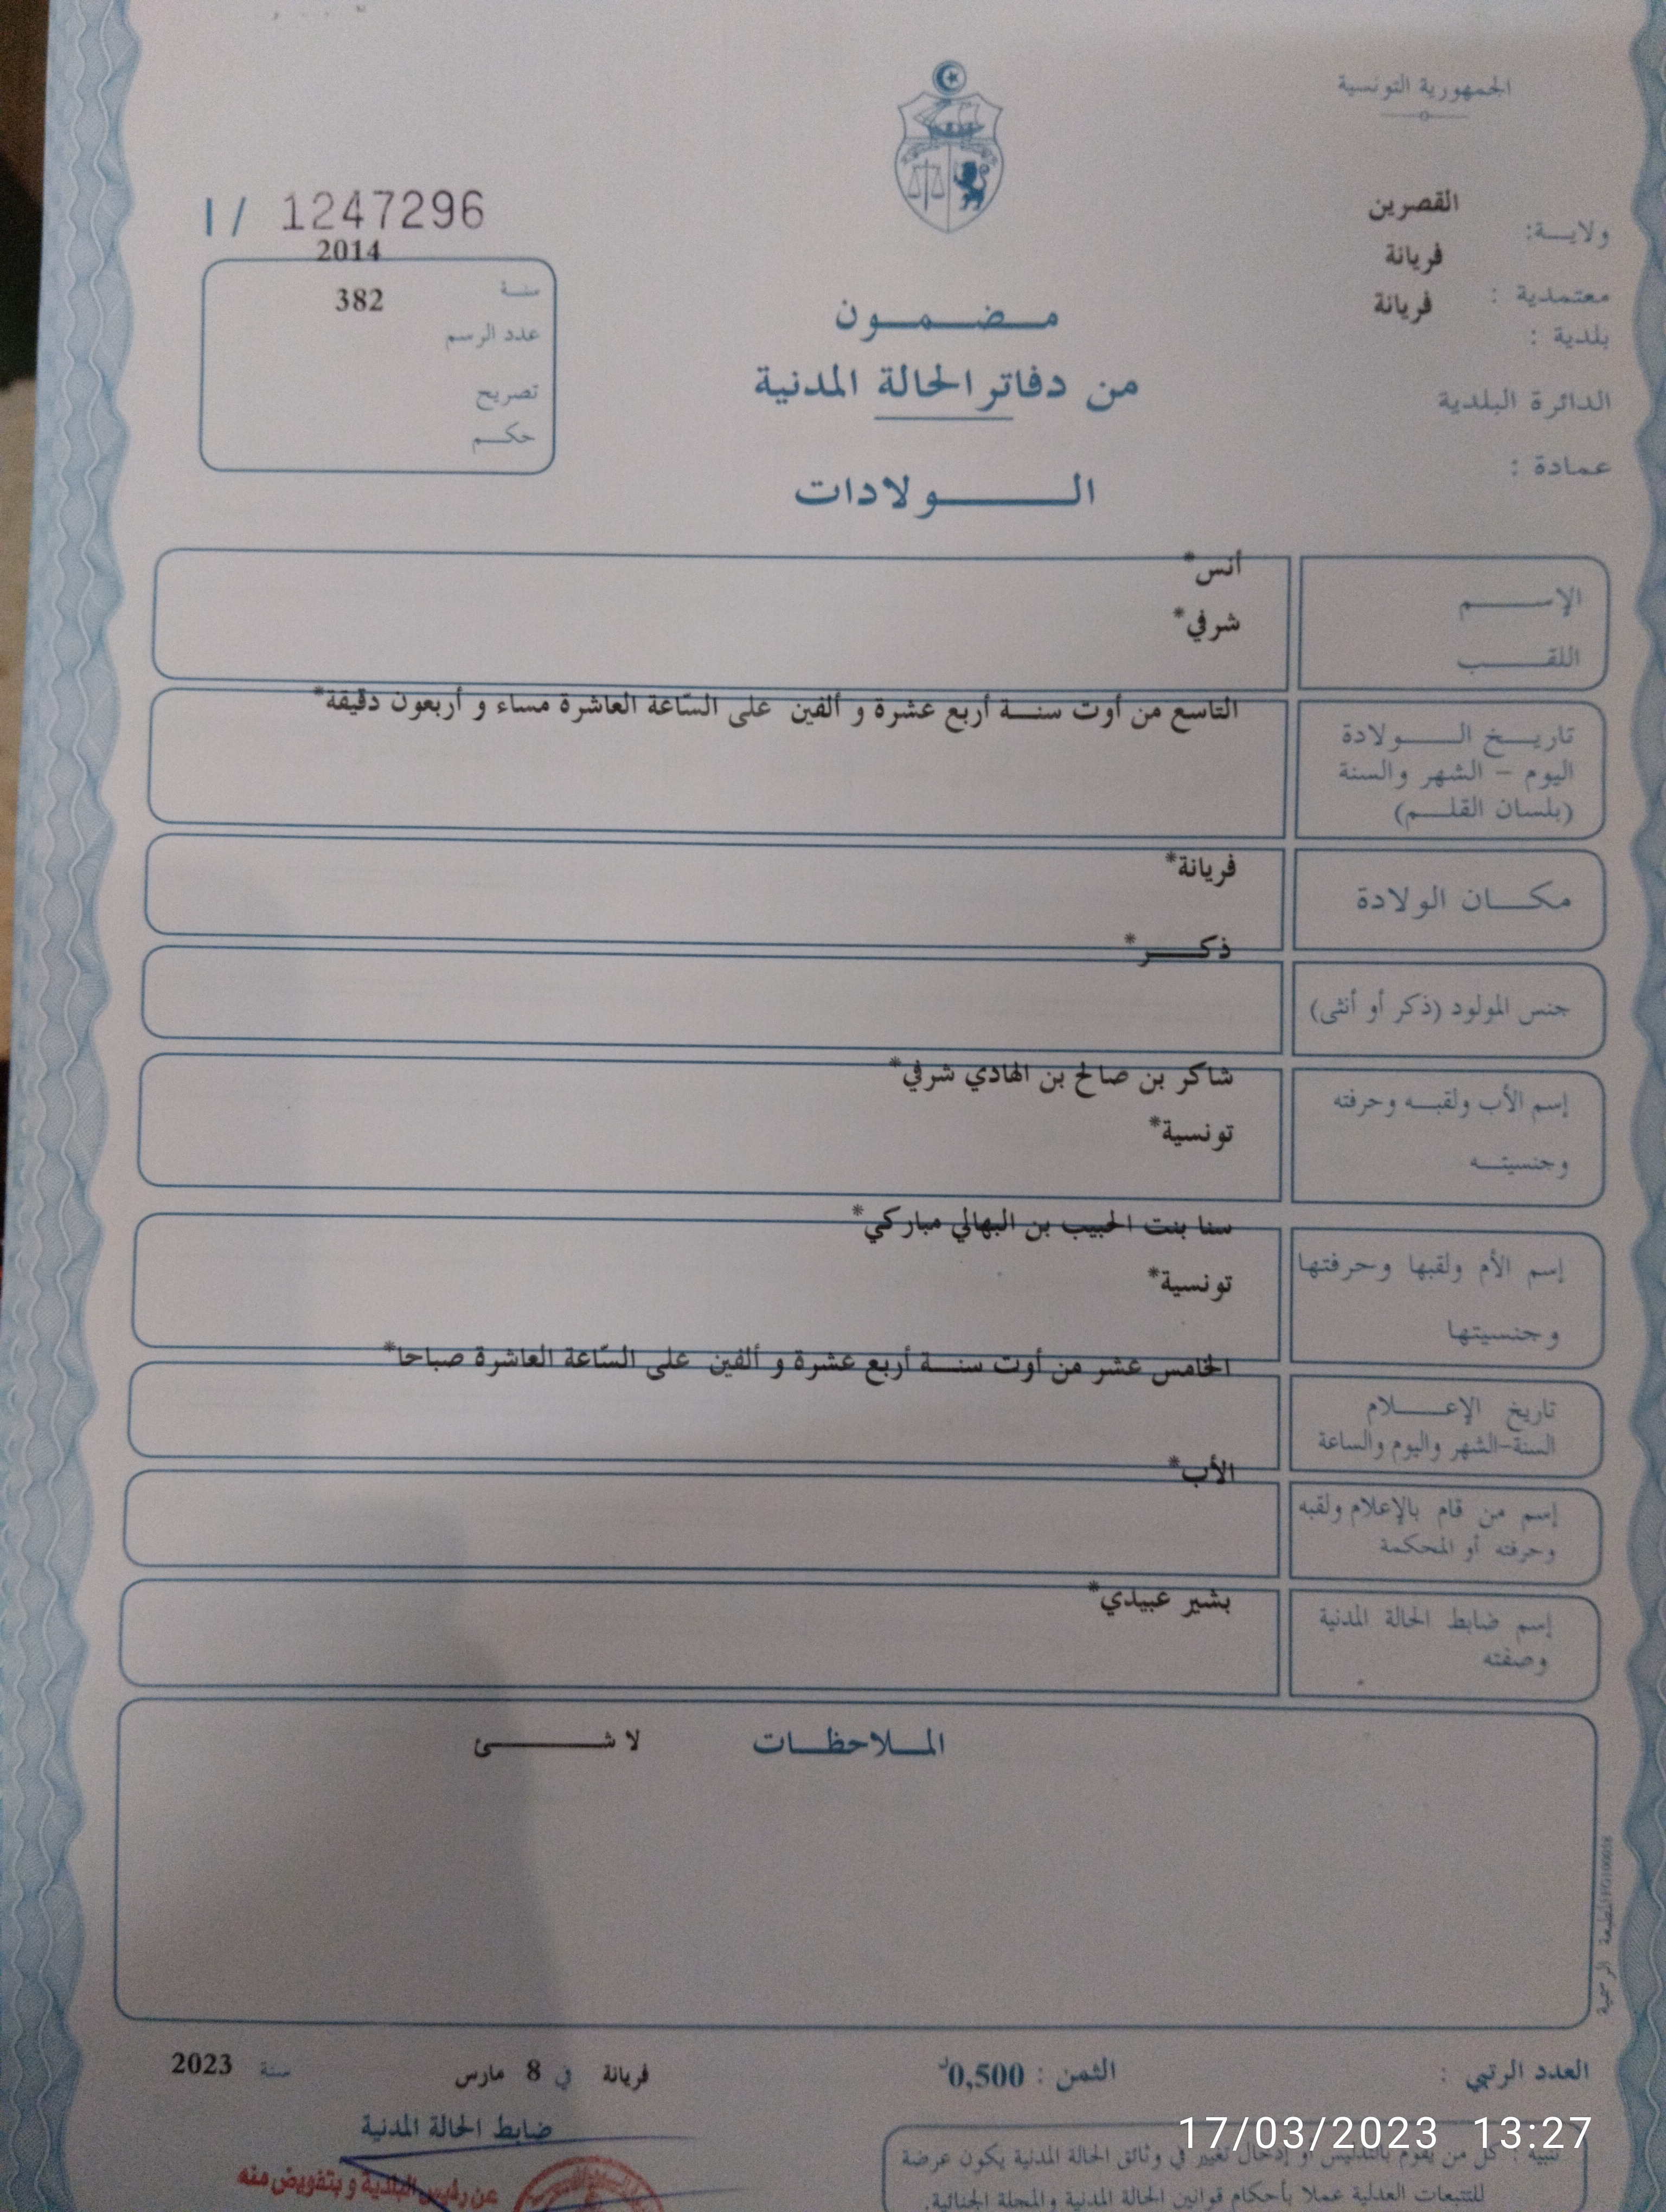 الجمهورية التونسية
ولايـــة: القصرين
معتمدية : فريانة
بلدية : فريانة
الدائرة البلدية
عمادة :
I / 1247296
2014
سنــة
382
عدد الرسم
تصريح
حكـــم
مـــضـــمـــون
من دفاتر الحالة المدنية
الـــــــولادات
الإســـــم
أنس*
اللقـــــب
شرفي*
تاريــخ الـــــولادة
اليوم – الشهر والسنة
(بلسان القلــم)
التاسع من أوت سنـــة أربع عشرة و ألفين على السّاعة العاشرة مساء و أربعون دقيقة*
مكـــان الولادة
فريانة*
جنس المولود (ذكر أو أنثى)
ذكـــــر*
إسم الأب ولقبــه وحرفته
شاكر بن صالح بن الهادي شرفي*
وجنسيتــه
تونسية*
إسم الأم ولقبها وحرفتها
سنا بنت الحبيب بن البهالي مباركي*
وجنسيتها
تونسية*
تاريخ الإعـــــلام
السنة-الشهر واليوم والساعة
الخامس عشر من أوت سنـــة أربع عشرة و ألفين على السّاعة العاشرة صباحا*
إسم من قام بالإعلام ولقبه
وحرفته أو المحكمة
الأب*
إسم ضابط الحالة المدنية
وصفته
بشير عبيدي*
المــلاحظــات لا شـــــــئ
المطبعة الرسمية
العدد الرتبي :
الثمن : 0,500د
فريانة في 8 مارس سنة 2023
ضابط الحالة المدنية
عن رئيس البلدية و بتفويض منه
تنبيه : كل من يقوم بالتدليس أو إدخال تغيير في وثائق الحالة المدنية يكون عرضة
للتتبعات العدلية عملا بأحكام قوانين الحالة المدنية والمجلة الجنائية.
17/03/2023 13:27